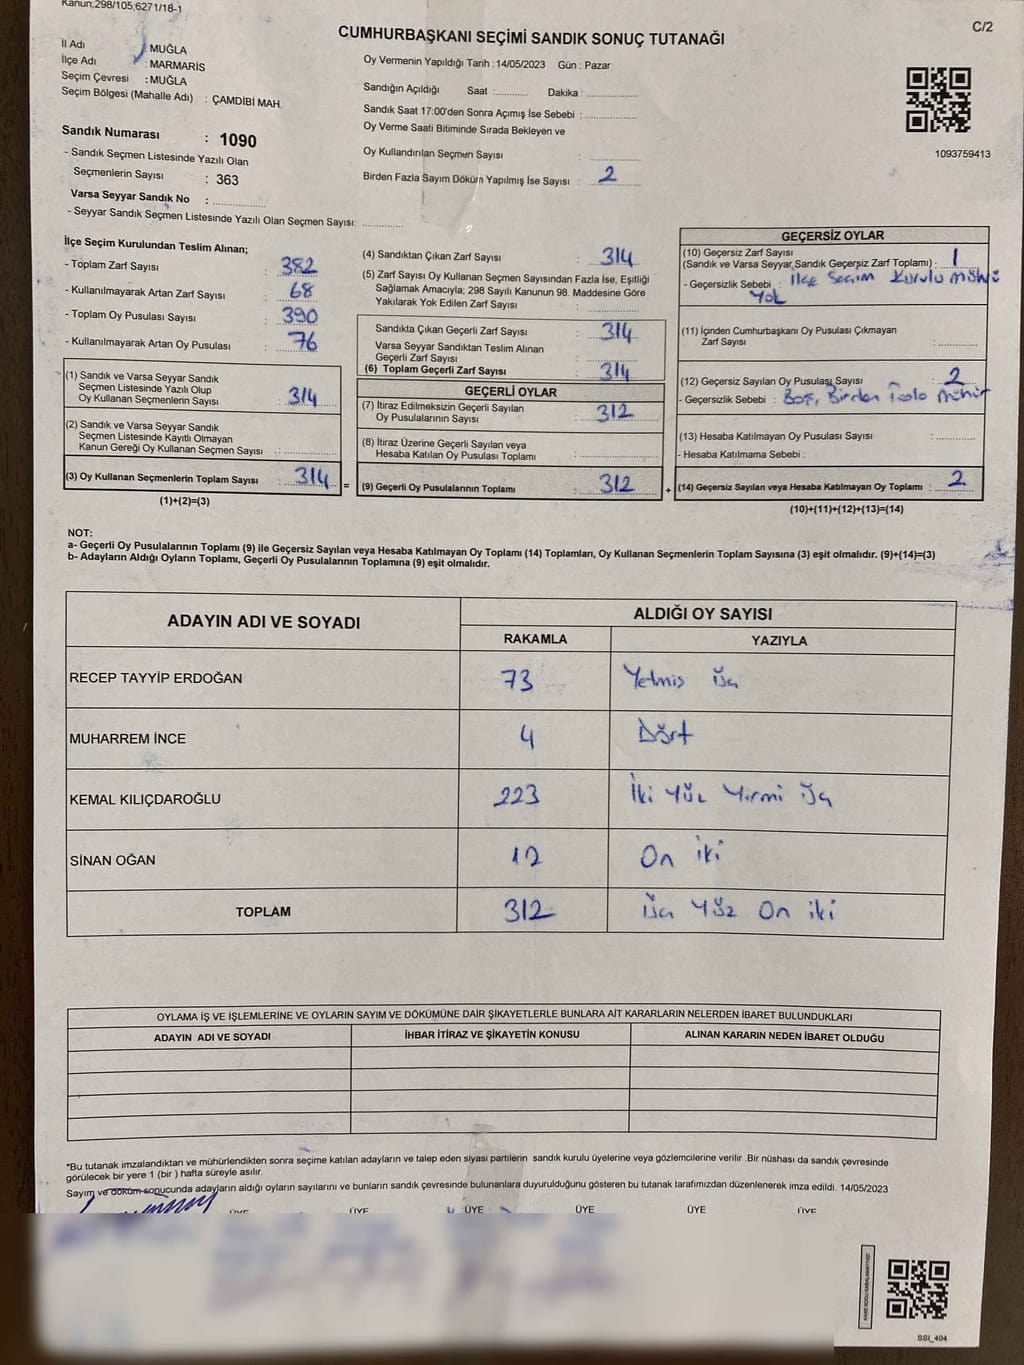 Kanun;298/105,6271/18-1
C/2
CUMHURBAŞKANI SEÇİMİ SANDIK SONUÇ TUTANAĞI
İl Adı : MUĞLA
İlçe Adı : MARMARİS
Seçim Çevresi : MUĞLA
Seçim Bölgesi (Mahalle Adı) : ÇAMDİBİ MAH.
Sandık Numarası : 1090
- Sandık Seçmen Listesinde Yazılı Olan
Seçmenlerin Sayısı : 363
Varsa Seyyar Sandık No :
- Seyyar Sandık Seçmen Listesinde Yazılı Olan Seçmen Sayısı:
Oy Vermenin Yapıldığı Tarih : 14/05/2023 Gün : Pazar
Sandığın Açıldığı Saat : Dakika :
Sandık Saat 17:00'den Sonra Açımış İse Sebebi :
Oy Verme Saati Bitiminde Sırada Bekleyen ve
Oy Kullandırılan Seçmen Sayısı :
Birden Fazla Sayım Döküm Yapılmış İse Sayısı : 2
1093759413
İlçe Seçim Kurulundan Teslim Alınan;
- Toplam Zarf Sayısı : 382
- Kullanılmayarak Artan Zarf Sayısı : 68
- Toplam Oy Pusulası Sayısı : 390
- Kullanılmayarak Artan Oy Pusulası : 76
(1) Sandık ve Varsa Seyyar Sandık
Seçmen Listesinde Yazılı Olup
Oy Kullanan Seçmenlerin Sayısı : 314
(2) Sandık ve Varsa Seyyar Sandık
Seçmen Listesinde Kayıtlı Olmayan
Kanun Gereği Oy Kullanan Seçmen Sayısı :
(3) Oy Kullanan Seçmenlerin Toplam Sayısı : 314 =
(1)+(2)=(3)
(4) Sandıktan Çıkan Zarf Sayısı : 314
(5) Zarf Sayısı Oy Kullanan Seçmen Sayısından Fazla İse, Eşitliği
Sağlamak Amacıyla; 298 Sayılı Kanunun 98. Maddesine Göre
Yakılarak Yok Edilen Zarf Sayısı :
Sandıkta Çıkan Geçerli Zarf Sayısı : 314
Varsa Seyyar Sandıktan Teslim Alınan
Geçerli Zarf Sayısı :
(6) Toplam Geçerli Zarf Sayısı : 314
GEÇERLİ OYLAR
(7) İtiraz Edilmeksizin Geçerli Sayılan
Oy Pusulalarının Sayısı : 312
(8) İtiraz Üzerine Geçerli Sayılan veya
Hesaba Katılan Oy Pusulası Toplamı :
(9) Geçerli Oy Pusulalarının Toplamı : 312 +
GEÇERSİZ OYLAR
(10) Geçersiz Zarf Sayısı
(Sandık ve Varsa Seyyar Sandık Geçersiz Zarf Toplamı) : 1
- Geçersizlik Sebebi : İlçe Seçim Kurulu Mührü
Yok
(11) İçinden Cumhurbaşkanı Oy Pusulası Çıkmayan
Zarf Sayısı :
(12) Geçersiz Sayılan Oy Pusulası Sayısı : 2
- Geçersizlik Sebebi : Boş, Birden Fazla Mühür
(13) Hesaba Katılmayan Oy Pusulası Sayısı :
- Hesaba Katılmama Sebebi :
(14) Geçersiz Sayılan veya Hesaba Katılmayan Oy Toplamı : 2
(10)+(11)+(12)+(13)=(14)
NOT:
a- Geçerli Oy Pusulalarının Toplamı (9) ile Geçersiz Sayılan veya Hesaba Katılmayan Oy Toplamı (14) Toplamları, Oy Kullanan Seçmenlerin Toplam Sayısına (3) eşit olmalıdır. (9)+(14)=(3)
b- Adayların Aldığı Oyların Toplamı, Geçerli Oy Pusulalarının Toplamına (9) eşit olmalıdır.
ADAYIN ADI VE SOYADI
ALDIĞI OY SAYISI
RAKAMLA YAZIYLA
RECEP TAYYİP ERDOĞAN 73 Yetmiş üç
MUHARREM İNCE 4 Dört
KEMAL KILIÇDAROĞLU 223 İki Yüz Yirmi üç
SİNAN OĞAN 12 On iki
TOPLAM 312 üç Yüz On iki
OYLAMA İŞ VE İŞLEMLERİNE VE OYLARIN SAYIM VE DÖKÜMÜNE DAİR ŞİKAYETLERLE BUNLARA AİT KARARLARIN NELERDEN İBARET BULUNDUKLARI
ADAYIN ADI VE SOYADI İHBAR İTİRAZ VE ŞİKAYETİN KONUSU ALINAN KARARIN NEDEN İBARET OLDUĞU
*Bu tutanak imzalandıktan ve mühürlendikten sonra seçime katılan adayların ve talep eden siyasi partilerin sandık kurulu üyelerine veya gözlemcilerine verilir .Bir nüshası da sandık çevresinde
görülecek bir yere 1 (bir ) hafta süreyle asılır.
Sayım ve döküm sonucunda adayların aldığı oyların sayılarını ve bunların sandık çevresinde bulunanlara duyurulduğunu gösteren bu tutanak tarafımızdan düzenlenerek imza edildi. 14/05/2023
ÜYE ÜYE ÜYE ÜYE ÜYE ÜYE
SSI_404